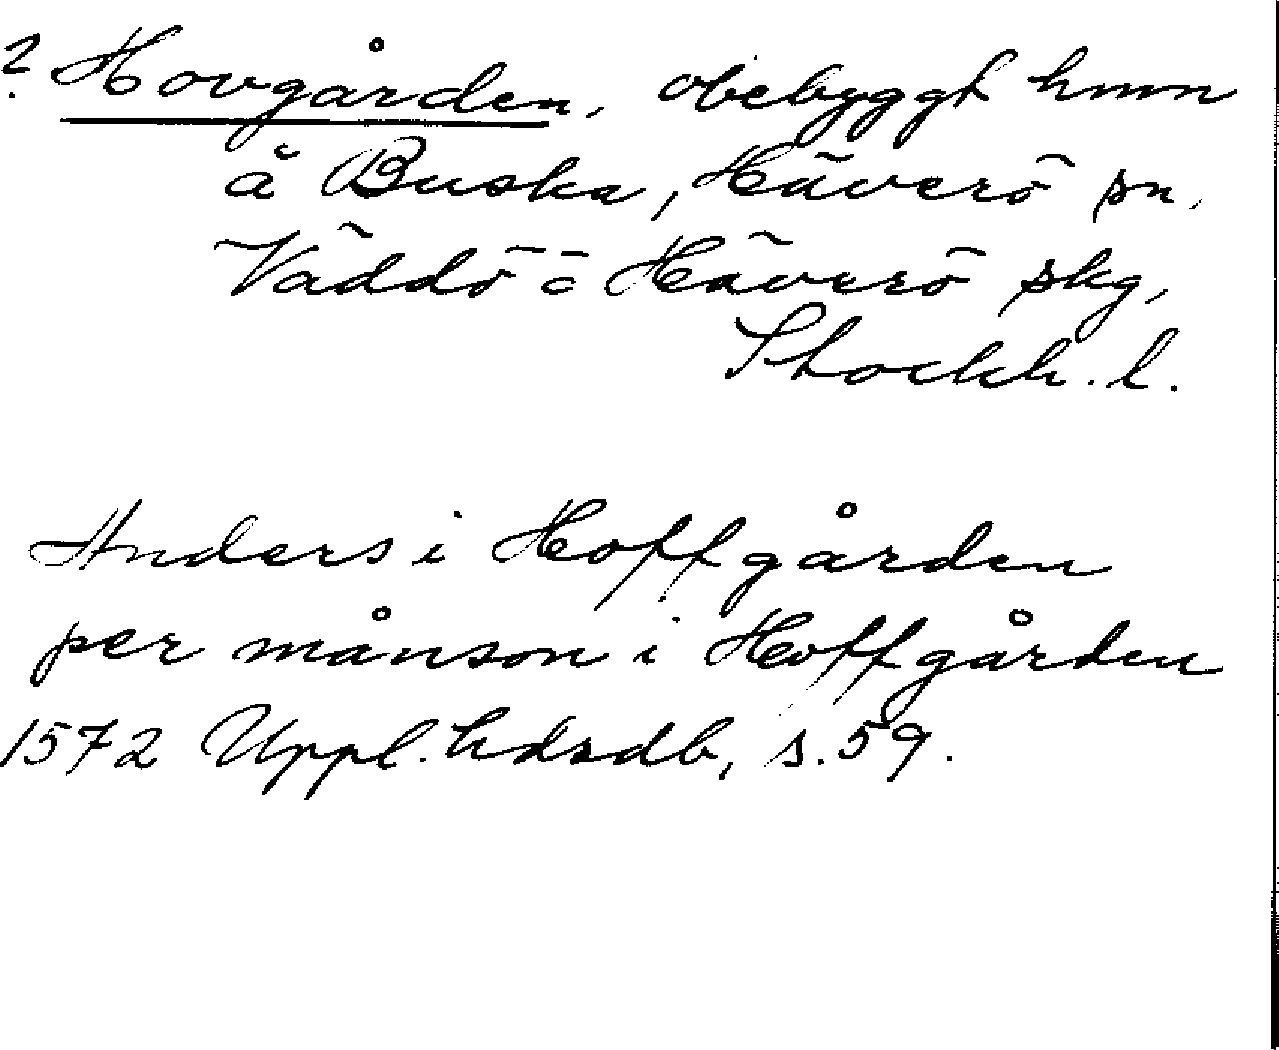 ? Hovgården, obebyggt hmn
å Buska, Häverö sn,
Väddö o Häverö skg,
Stockh. l.
Anders i Hoffgården
per månson i Hoffgården
1572 Uppl. hdrdb, s. 59.